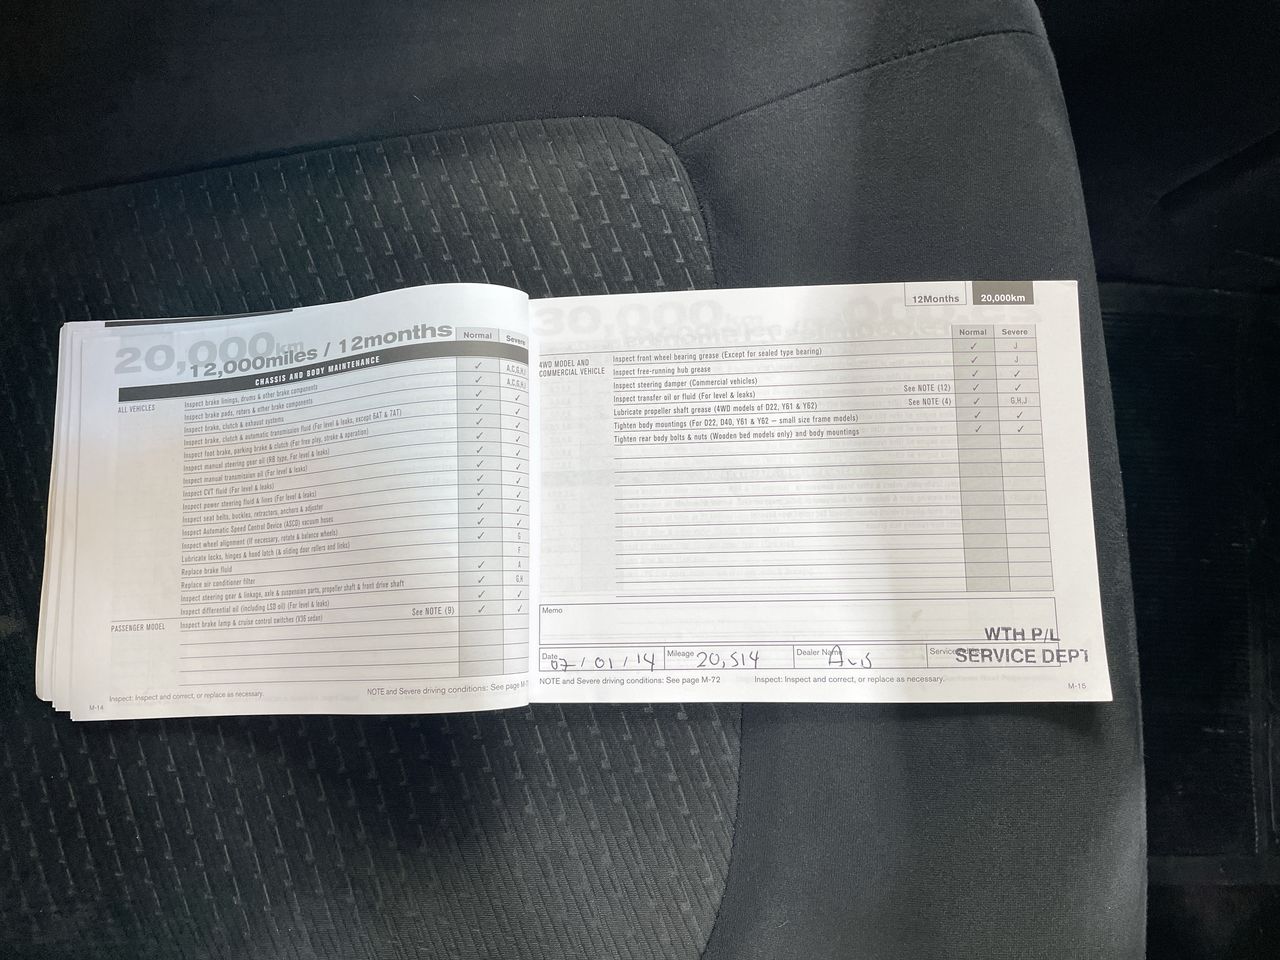 20,000km
12,000miles / 12months
Normal Severe
CHASSIS AND BODY MAINTENANCE
ALL VEHICLES
Inspect brake linings, drums & other brake components ✓ A,C,G,H
Inspect brake pads, rotors & other brake components ✓ A,C,G,H
Inspect brake, clutch & exhaust systems ✓ ✓
Inspect brake, clutch & automatic transmission fluid (For level & leaks, except 6AT & 7AT) ✓ ✓
Inspect foot brake, parking brake & clutch (For free play, stroke & operation) ✓ ✓
Inspect manual steering gear oil (RB type, For level & leaks) ✓ ✓
Inspect manual transmission oil (For level & leaks) ✓ ✓
Inspect CVT fluid (For level & leaks) ✓ ✓
Inspect power steering fluid & lines (For level & leaks) ✓ ✓
Inspect seat belts, buckles, retractors, anchors & adjuster ✓ ✓
Inspect Automatic Speed Control Device (ASCD) vacuum hoses ✓ ✓
Inspect wheel alignment (If necessary, rotate & balance wheels) ✓ ✓
Lubricate locks, hinges & hood latch (& sliding door rollers and links) ✓ G
Replace brake fluid F
Replace air conditioner filter ✓ A
Inspect steering gear & linkage, axle & suspension parts, propeller shaft & front drive shaft ✓ G,H
Inspect differential oil (including LSD oil) (For level & leaks) See NOTE (9) ✓ ✓
PASSENGER MODEL Inspect brake lamp & cruise control switches (X36 sedan) ✓ ✓
Inspect: Inspect and correct, or replace as necessary.
NOTE and Severe driving conditions: See page M-7
M-14
12Months 20,000km
Normal Severe
4WD MODEL AND
COMMERCIAL VEHICLE
Inspect front wheel bearing grease (Except for sealed type bearing) ✓ J
Inspect free-running hub grease ✓ J
Inspect steering damper (Commercial vehicles) ✓ ✓
Inspect transfer oil or fluid (For level & leaks) See NOTE (12) ✓ ✓
Lubricate propeller shaft grease (4WD models of D22, Y61 & Y62) See NOTE (4) ✓ G,H,J
Tighten body mountings (For D22, D40, Y61 & Y62 – small size frame models) ✓ ✓
Tighten rear body bolts & nuts (Wooden bed models only) and body mountings ✓ ✓
Memo
WTH P/L
SERVICE DEPT
Date 07/01/14 Mileage 20,514 Dealer Name Avis
NOTE and Severe driving conditions: See page M-72
Inspect: Inspect and correct, or replace as necessary.
M-15